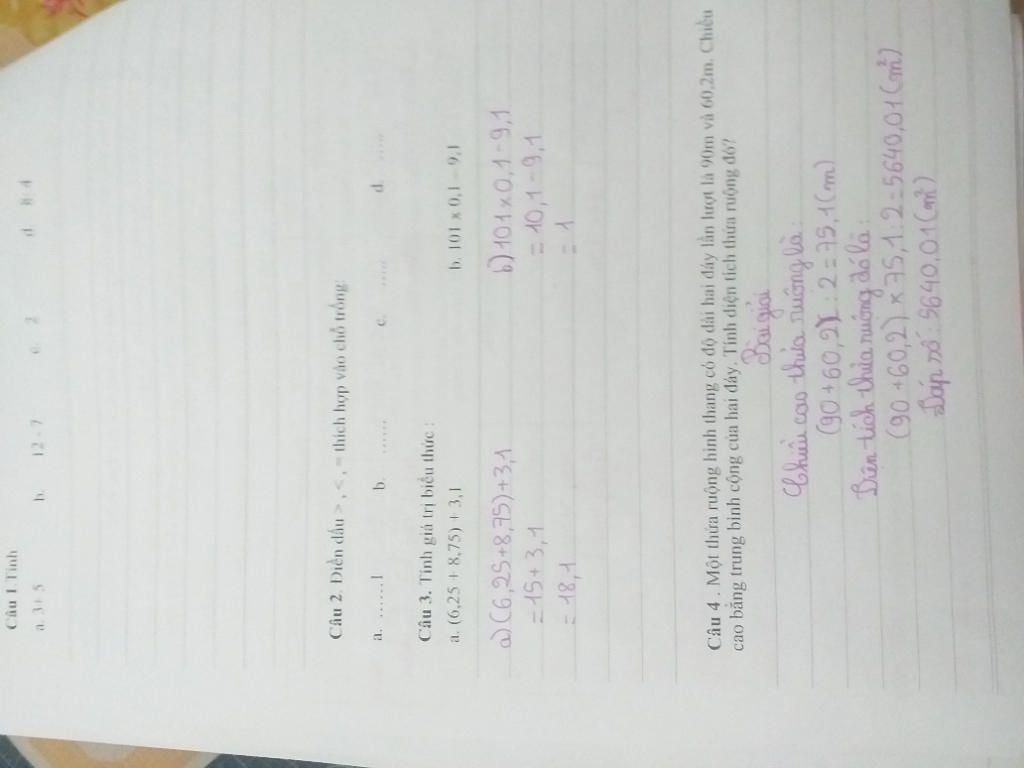 Câu 1. Tính
a. 3 + 5 b. 12 - 7 c. 2 d. 8: 4
Câu 2. Điền dấu > , < , = thích hợp vào chỗ trống:
a. .......1 b. ...... c. ..... d. .....
Câu 3. Tính giá trị biểu thức :
a. (6,25 + 8,75) + 3,1 b. 101 x 0,1 – 9,1
a) (6,25+8,75)+3,1 b) 101 x 0,1 - 9,1
= 15 + 3,1 = 10,1 - 9,1
= 18,1 = 1
Câu 4 . Một thửa ruộng hình thang có độ dài hai đáy lần lượt là 90m và 60,2m. Chiều
cao bằng trung bình cộng của hai đáy. Tính diện tích thửa ruộng đó?
Bài giải
Chiều cao thửa ruộng là:
(90+60,2) : 2 = 75,1 (m)
Diện tích thửa ruộng đó là:
(90+60,2) x 75,1:2 = 5640,01 (m²)
Đáp số: 5640,01 (m²)